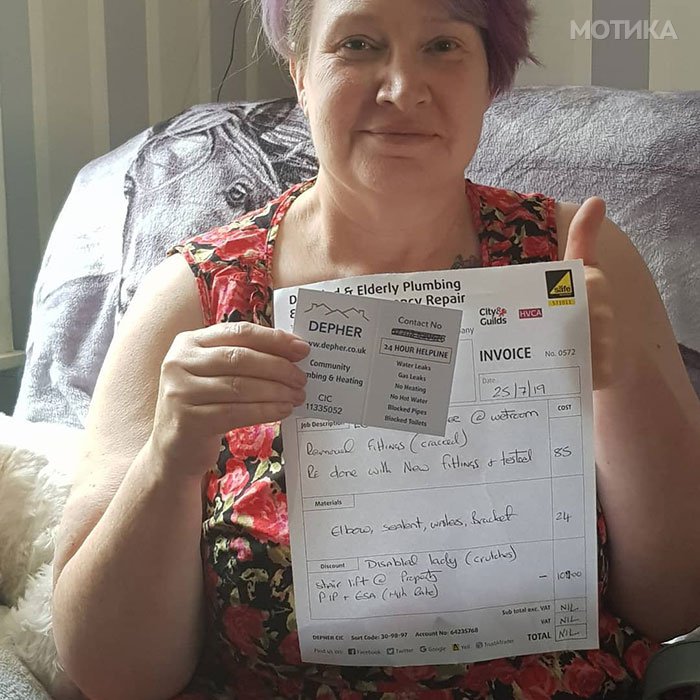 МОТИКА
& Elderly Plumbing
& Repair
City&
Guilds
HVCA
Gas
safe
DEPHER
www.depher.co.uk
Community
Plumbing & Heating
CIC
11335052
Contact No
24 HOUR HELPLINE
Water Leaks
Gas Leaks
No Heating
No Hot Water
Blocked Pipes
Blocked Toilets
INVOICE No. 0572
Date
25/7/19
Job Description
@ wetroom
COST
Removal fittings (cracked)
Re done with New fittings & tested
85
Materials
Elbow, sealent, washers, Bracket
24
Discount
Disabled lady (crutches)
Stair lift @ Property
PIP + ESA (High Rate)
Sub total exc. VAT NIL
VAT NIL
TOTAL NIL
DEPHER CIC Sort Code: 30-98-97 Account No: 64235768
Find us on: Facebook Twitter Google Yell TrustATrader